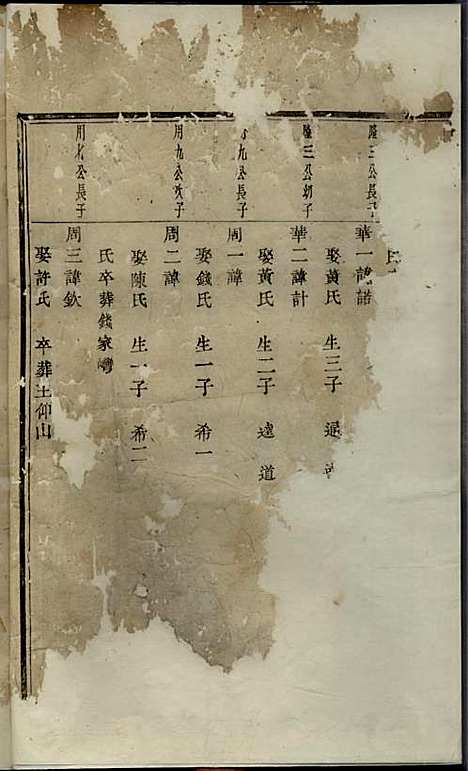 隆三公長子
華一諱諾
娶黃氏 生三子 遜
隆三公幼子
華二諱計
娶黃氏 生二子 遠 道
九公長子
周一諱
娶錢氏 生一子 希一
用九公次子
周二諱
娶陳氏 生一子 希二
氏卒葬錢家灣
公長子
周三諱欽
娶許氏 卒葬王仰山